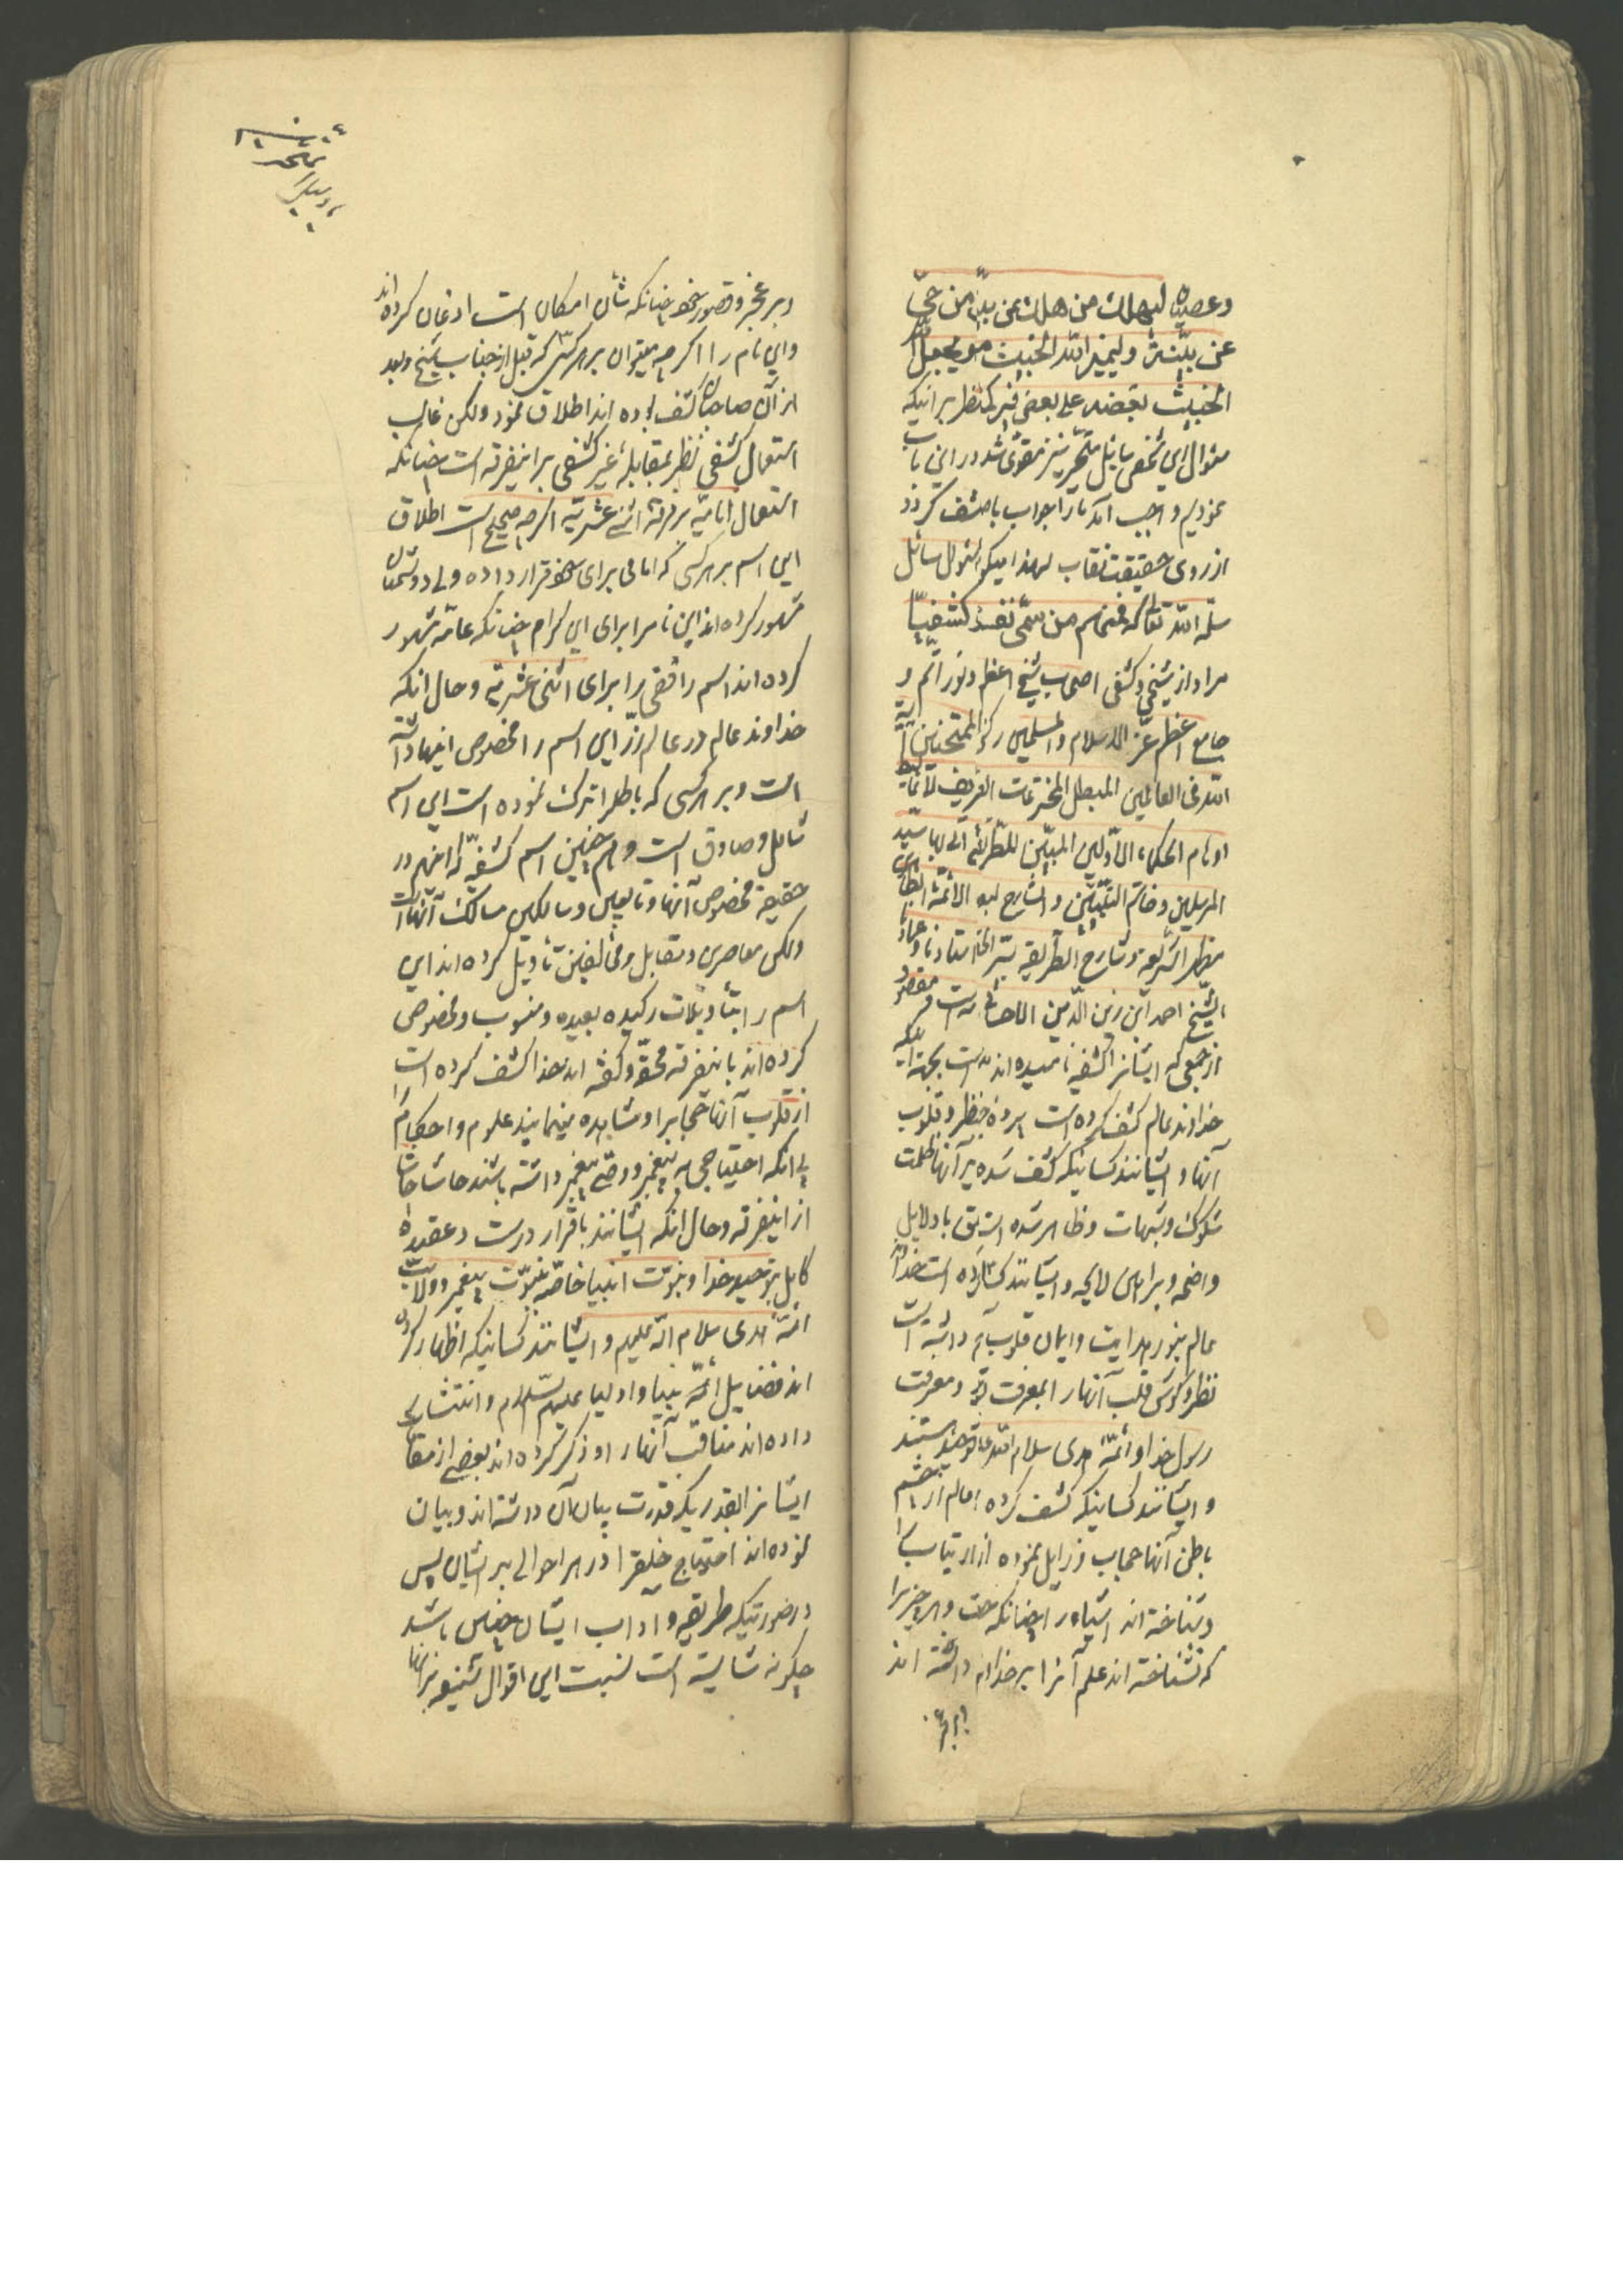 وعصیانه لیهلك من هلك عن بینة من حیّ
عن بیّنة ولیمیز الله الخبیث من ویجعل
الخبیث بعضه علی بعض فیرکم نظر برانیکه
سئوال این شخص سایل متحیر نیز مقوی شد در این باب
نمودیم واجب آمد ما را جواب با صفت کردن
از روی حقیقت نقاب لهذا میگوئیم قول سائل
سلّمه الله تعالی فمنهم من سمّی نفسه کشفیّا
مراد از شیخی وکشفی اصحاب شیخ اعظم ونور اتم و
جامع اعظم عز الاسلام والمسلمین رکن الممتحنین آیة
الله فی العالمین المبطل المخترعات
اوهام الحکماء الاوّلین المبیّن للطریقة التی لها سیّد
المرسلین وخاتم النبیّین والشارح لها الائمّة الطاهرین
مظهر الشریعة وشارح الطریقة سرّ الخ استادنا وعمادنا
الشیخ احمد ابن زین الدّین الاحسائی است ومقصود
از جمعی که ایشانرا کشفیه نامیده اند است بجهة اینکه
خداوند عالم کشف کرده است پرده از نظر وقلوب
آنها وایشانند کسانیکه کشف شده بر آنها ظلمت
شکوک وشبهات وظاهر شده است حق با دلایل
واضحه وبراهین لایحه وایشانند که کرده است خداوند
عالم بنور هدایت وایمان قلوب داشته است
نظر وگوش قلب آنها را بمعرفت خود ومعرفت
رسول خدا وائمّه هدی سلام الله علیهم هستند
وایشانند کسانیکه کشف کرده امام از چشم
باطن آنها حجاب وزایل نموده از ارتیاب را
وشناخته اند اشیاء را چنانکه حقست وهر چیز را
که نشناخته اند علم آنرا بر خدا داشته اند
وبر عجز
وبر عجز وقصور خود چنانکه شأن امکان است اذعان کرده اند
واین نام را اگرچه میتوان بر هر کسی که قبل از جناب شیخ وبعد
از آن صاحبان کشف بوده اند اطلاق نمود ولکن غالب
استعمال کشفی نظر بمقابله غیر کشفی بر اینفرقه است چنانکه
استعمال امامیّه بر فرقه اثنی عشریّه اگرچه صحیح است اطلاق
این اسم بر هر کسی که امامی برای خود قرار داده ولی دوستان
مشهور کرده اند این نام را برای این کرام چنانکه عامّه مشهور
کرده اند اسم رافضی را برای اثنی عشریّه وحال انکه
خداوند عالم در عالم ذرّ این اسم را مخصوص اینها داشته
است وبر هر کسی که باطل را ترک نموده است این اسم
شامل وصادق است وهم چنین اسم کشفیّه اینهم در
حقیقة مخصوص آنها وتابعین وسالکین مسالک آنهاست
ولکن معاصرین ومقابل ومخالفین تأویل کرده اند این
اسم را بتأویلات رکیکه بعیده ومنسوب ومخصوص
کرده اند باینفرقه محقّه وگفته اند خدا کشف کرده است
از قلوب آنها حجابرا ومشاهده مینمایند علوم واحکام را
بی انکه احتیاجی به پیغمبر ووصی پیغمبر داشته باشند حاشا حاشا
از اینفرقه وحال انکه ایشانند باقرار درست وعقیده
کامل بتوحید خدا ونبوّت انبیا خاصّه نبوّت پیغمبر وولایت
ائمّه هدی سلام الله علیهم وایشانند کسانیکه اظهار کرده
اند فضایل ائمّه نبیا واولیا علیهم السّلام وانتشار
داده اند مناقب آنها را وذکر کرده اند بعضی از مقامات
ایشانرا بقدریکه قدرت بیان آن داشته اند وبیان
نموده اند احتیاج خلقرا در هر احوالی بر ایشان پس
در صورتیکه طریقه وآداب ایشان چنین باشد
چگونه شایسته است نسبت این اقوال شنیعه بر انها